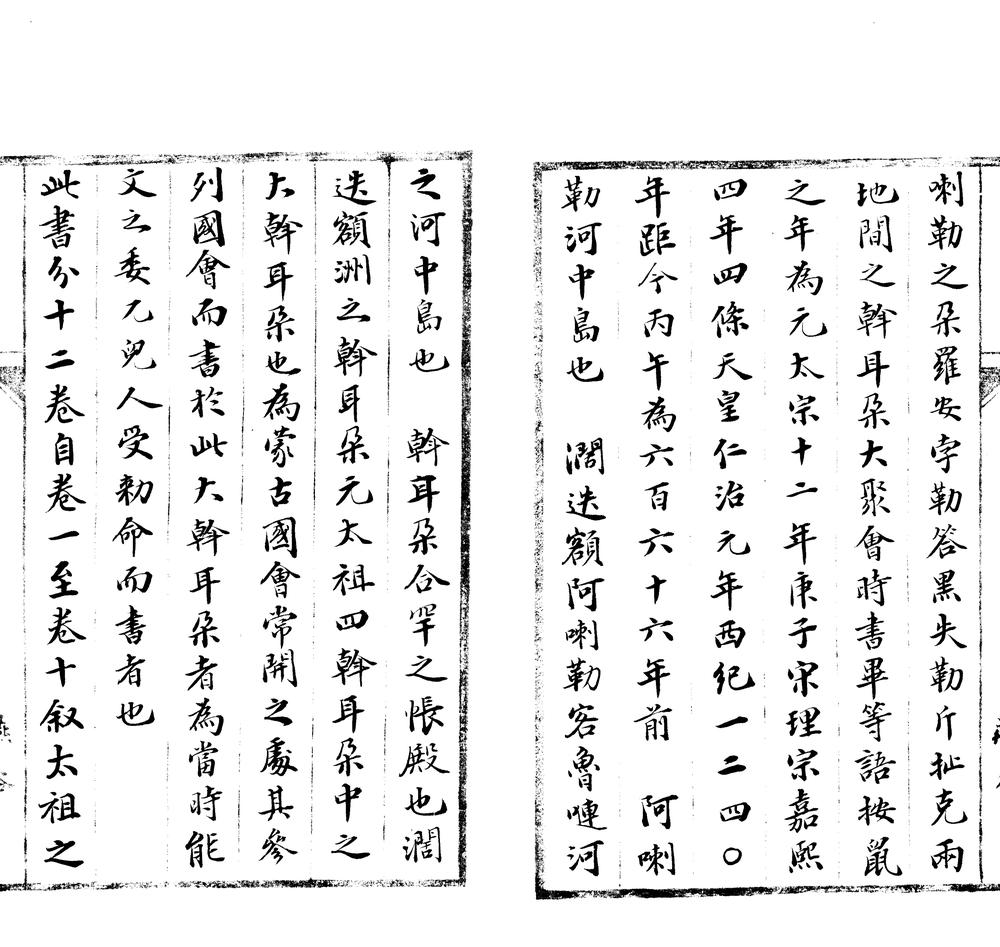 喇勒之朶羅安孛勒答黒失勒斤扯克兩
地間之斡耳朶大聚會時書畢等語按鼠
之年為元太宗十二年庚子宋理宗嘉熙
四年四條天皇仁治元年西紀一二四〇
年距今丙午為六百六十六年前 阿喇
勒河中島也 濶迭額阿喇勒客魯嗹河
之河中島也 斡耳朶合罕之帳殿也濶
迭額洲之斡耳朶元太祖四斡耳朶中之
大斡耳朶也為蒙古國會常開之處其參
列國會而書於此大斡耳朶者為當時能
文之委兀兒人受勅命而書者也
此書分十二卷自卷一至卷十叙太祖之